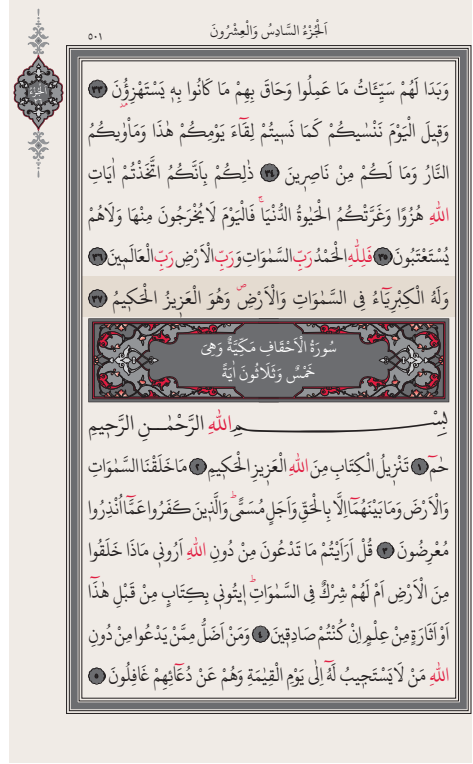 اَلْجُزْءُ السَّادِسُ وَالْعِشْرُونَ
٥٠١
اَلْجُزْءُ
وَبَدَا لَهُمْ سَيِّـَٔاتُ مَا عَمِلُوا وَحَاقَ بِهِمْ مَا كَانُوا بِهٖ يَسْتَهْزِؤُنَ ٣٣
وَقِيلَ الْيَوْمَ نَنْسٰيكُمْ كَمَا نَسٖيتُمْ لِقَٓاءَ يَوْمِكُمْ هٰذَا وَمَأْوٰيكُمُ
النَّارُ وَمَا لَكُمْ مِنْ نَاصِرٖينَ ٣٤ ذٰلِكُمْ بِاَنَّكُمُ اتَّخَذْتُمْ اٰيَاتِ
اللّٰهِ هُزُوًا وَغَرَّتْكُمُ الْحَيٰوةُ الدُّنْيَاۚ فَالْيَوْمَ لَايُخْرَجُونَ مِنْهَا وَلَاهُمْ
يُسْتَعْتَبُونَ ٣٥ فَلِلّٰهِ الْحَمْدُ رَبِّ السَّمٰوَاتِ وَرَبِّ الْاَرْضِ رَبِّ الْعَالَمٖينَ ٣٦
وَلَهُ الْكِبْرِيَٓاءُ فِي السَّمٰوَاتِ وَالْاَرْضِۖ وَهُوَ الْعَزٖيزُ الْحَكٖيمُ ٣٧
سُورَةُ الْاَحْقَافِ مَكِّيَّةٌ وَهِيَ
خَمْسٌ وَثَلَاثُونَ اٰيَةً
بِسْمِ اللّٰهِ الرَّحْمٰنِ الرَّحٖيمِ
حٰمٓ ١ تَنْزٖيلُ الْكِتَابِ مِنَ اللّٰهِ الْعَزٖيزِ الْحَكٖيمِ ٢ مَا خَلَقْنَا السَّمٰوَاتِ
وَالْاَرْضَ وَمَا بَيْنَهُمَٓا اِلَّا بِالْحَقِّ وَاَجَلٍ مُسَمًّىۜ وَالَّذٖينَ كَفَرُوا عَمَّٓا اُنْذِرُوا
مُعْرِضُونَ ٣ قُلْ اَرَاَيْتُمْ مَا تَدْعُونَ مِنْ دُونِ اللّٰهِ اَرُونٖي مَاذَا خَلَقُوا
مِنَ الْاَرْضِ اَمْ لَهُمْ شِرْكٌ فِي السَّمٰوَاتِۜ اٖيتُونٖي بِكِتَابٍ مِنْ قَبْلِ هٰذَٓا
اَوْ اَثَارَةٍ مِنْ عِلْمٍ اِنْ كُنْتُمْ صَادِقٖينَ ٤ وَمَنْ اَضَلُّ مِمَّنْ يَدْعُوا مِنْ دُونِ
اللّٰهِ مَنْ لَايَسْتَجٖيبُ لَهُٓ اِلٰى يَوْمِ الْقِيٰمَةِ وَهُمْ عَنْ دُعَٓائِهِمْ غَافِلُونَ ٥